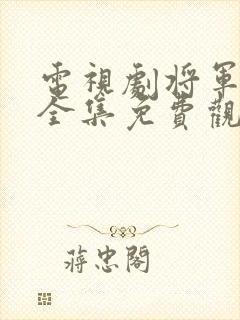 電視劇將軍
全集免費觀
蔣忠閣